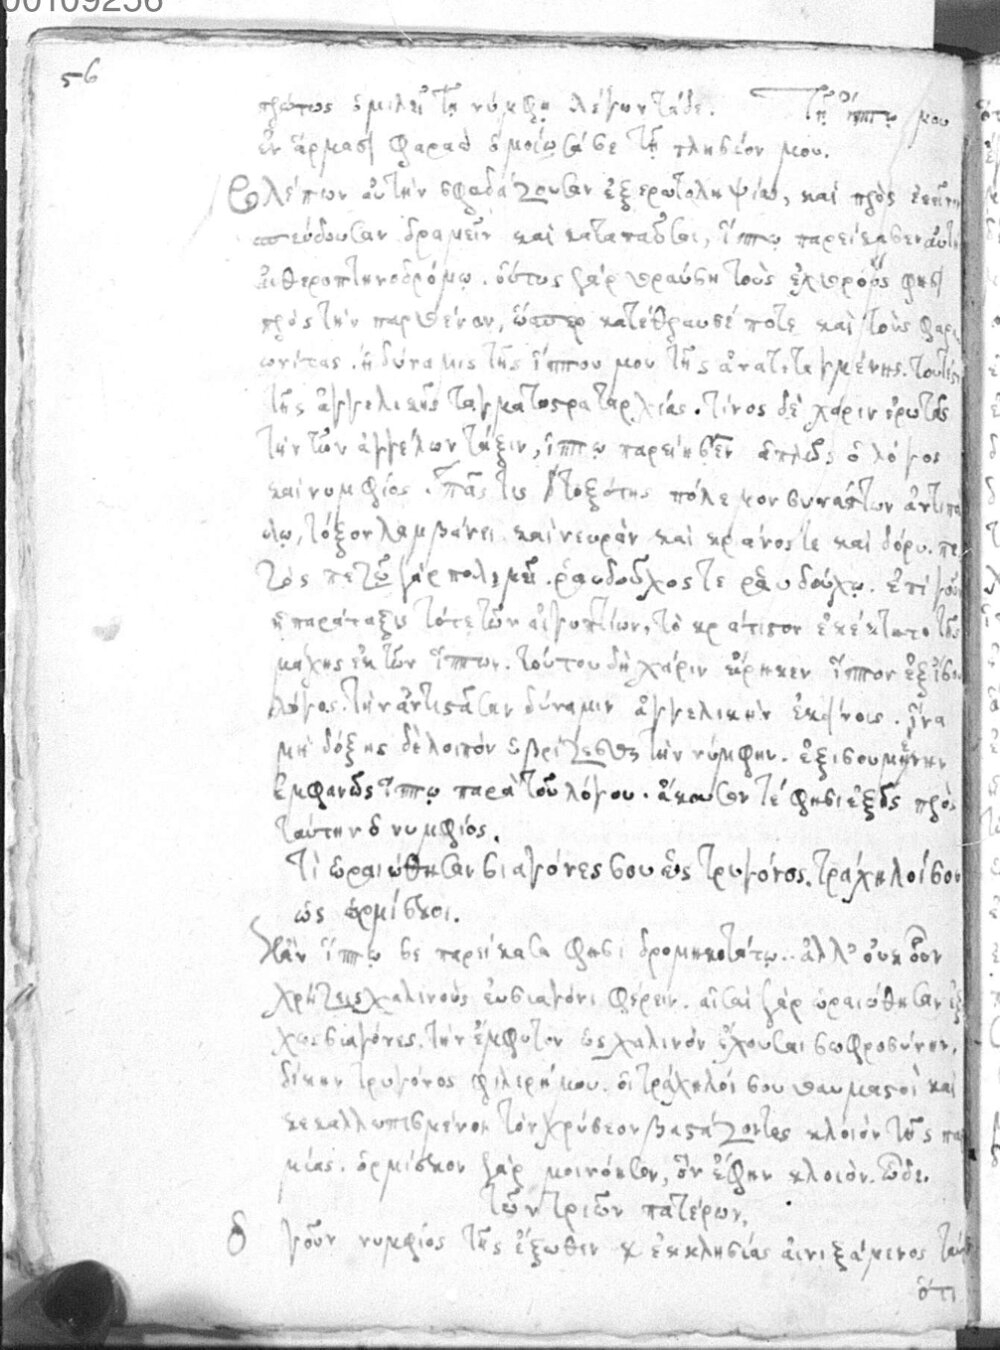 00109256
56
πρώτως ὁμιλεῖ τῇ νύμφῃ λέγων τάδε. Τῇ ἵππῳ μου
ἐν ἅρμασι φαραὼ ὁμοίωσά σε τῇ πλησίον μου.
Βλέπων αὐτὴν σφαδάζουσαν ἐξ ἐρωτοληψίας, καὶ πρὸς
σπεύδουσαν δραμεῖν καὶ καταπαῦσαι, ἵππῳ παρείκασεν αὐτὴν
αἰθεροπτηνοδρόμῳ. οὕτως γὰρ θραύσῃ τοὺς ἐχθρούς φησι
πρὸς τὴν παρθένον, ὥσπερ κατέθραυσέ ποτε καὶ τοὺς φαρα
ωνίτας. ἡ δύναμις τῆς ἵππου μου τῆς ἀνατεταγμένης. τουτέστι
τῆς ἀγγελικῆς ταγματοστραταρχίας. τίνος δὲ χάριν ἐρωτᾷς
τὴν τῶν ἀγγέλων τάξιν, ἵππῳ παρείκασεν ἁπλῶς ὁ λόγος
καὶ νυμφίος. Πᾶς τις τοξότης πόλεμον συνάπτων ἀντιπά
λῳ, τόξον λαμβάνει καὶ νευρὰν καὶ κράνος τε καὶ δόρυ. πε
ζὸς πεζῷ γὰρ πολεμεῖ. ῥαβδοῦχός τε ῥαβδούχῳ. ἐπὶ γοῦν
ἡ παράταξις τότε τῶν αἰγυπτίων, τὸ κράτιστον ἐκέκτητο τῆς
μάχης ἐκ τῶν ἵππων. τούτου δὴ χάριν εἴρηκεν ἵππον ἐξ ἴσου
λόγος. τὴν ἀντιστᾶσαν δύναμιν ἀγγελικὴν ἐκείνοις. ἵνα
μὴ δόξῃς δὲ λοιπὸν ὑβρίζεσθαι τὴν νύμφην. ἐξισουμένην
ἐμφανῶς ἵππῳ παρὰ τοῦ λόγου. ἄκουσον τί φησι ἑξῆς πρὸς
ταύτην ὁ νυμφίος.
Τί ὡραιώθησαν σιαγόνες σου ὡς τρυγόνος. τράχηλοί σου
ὡς ὁρμίσκοι.
Κἂν ἵππῳ σε παρείκασα φησι δρομικωτάτῳ. ἀλλ' οὐκ οὖν
χρῄζεις χαλινοὺς ἐν σιαγόνι φέρειν. αὗται γὰρ ὡραιώθησαν
σιαγόνες. τὴν ἔμφυτον ὡς χαλινὸν ἔχουσαι σωφροσύνην,
δίκην τρυγόνος φιλερήμου. οἱ τράχηλοί σου θαυμαστοὶ καὶ
κεκαλλωπισμένοι τὸν χρύσεον βαστάζοντες κλοιὸν τῆς
μίας. ὁρμίσκον γὰρ μοι νόησον, ὃν ἔφην κλοιὸν. ὧδε.
τῶν τριῶν πατέρων.
ὁ γοῦν νυμφίος τῆς ἔξωθεν ἐκκλησίας αἰνιξάμενος
ὅτι